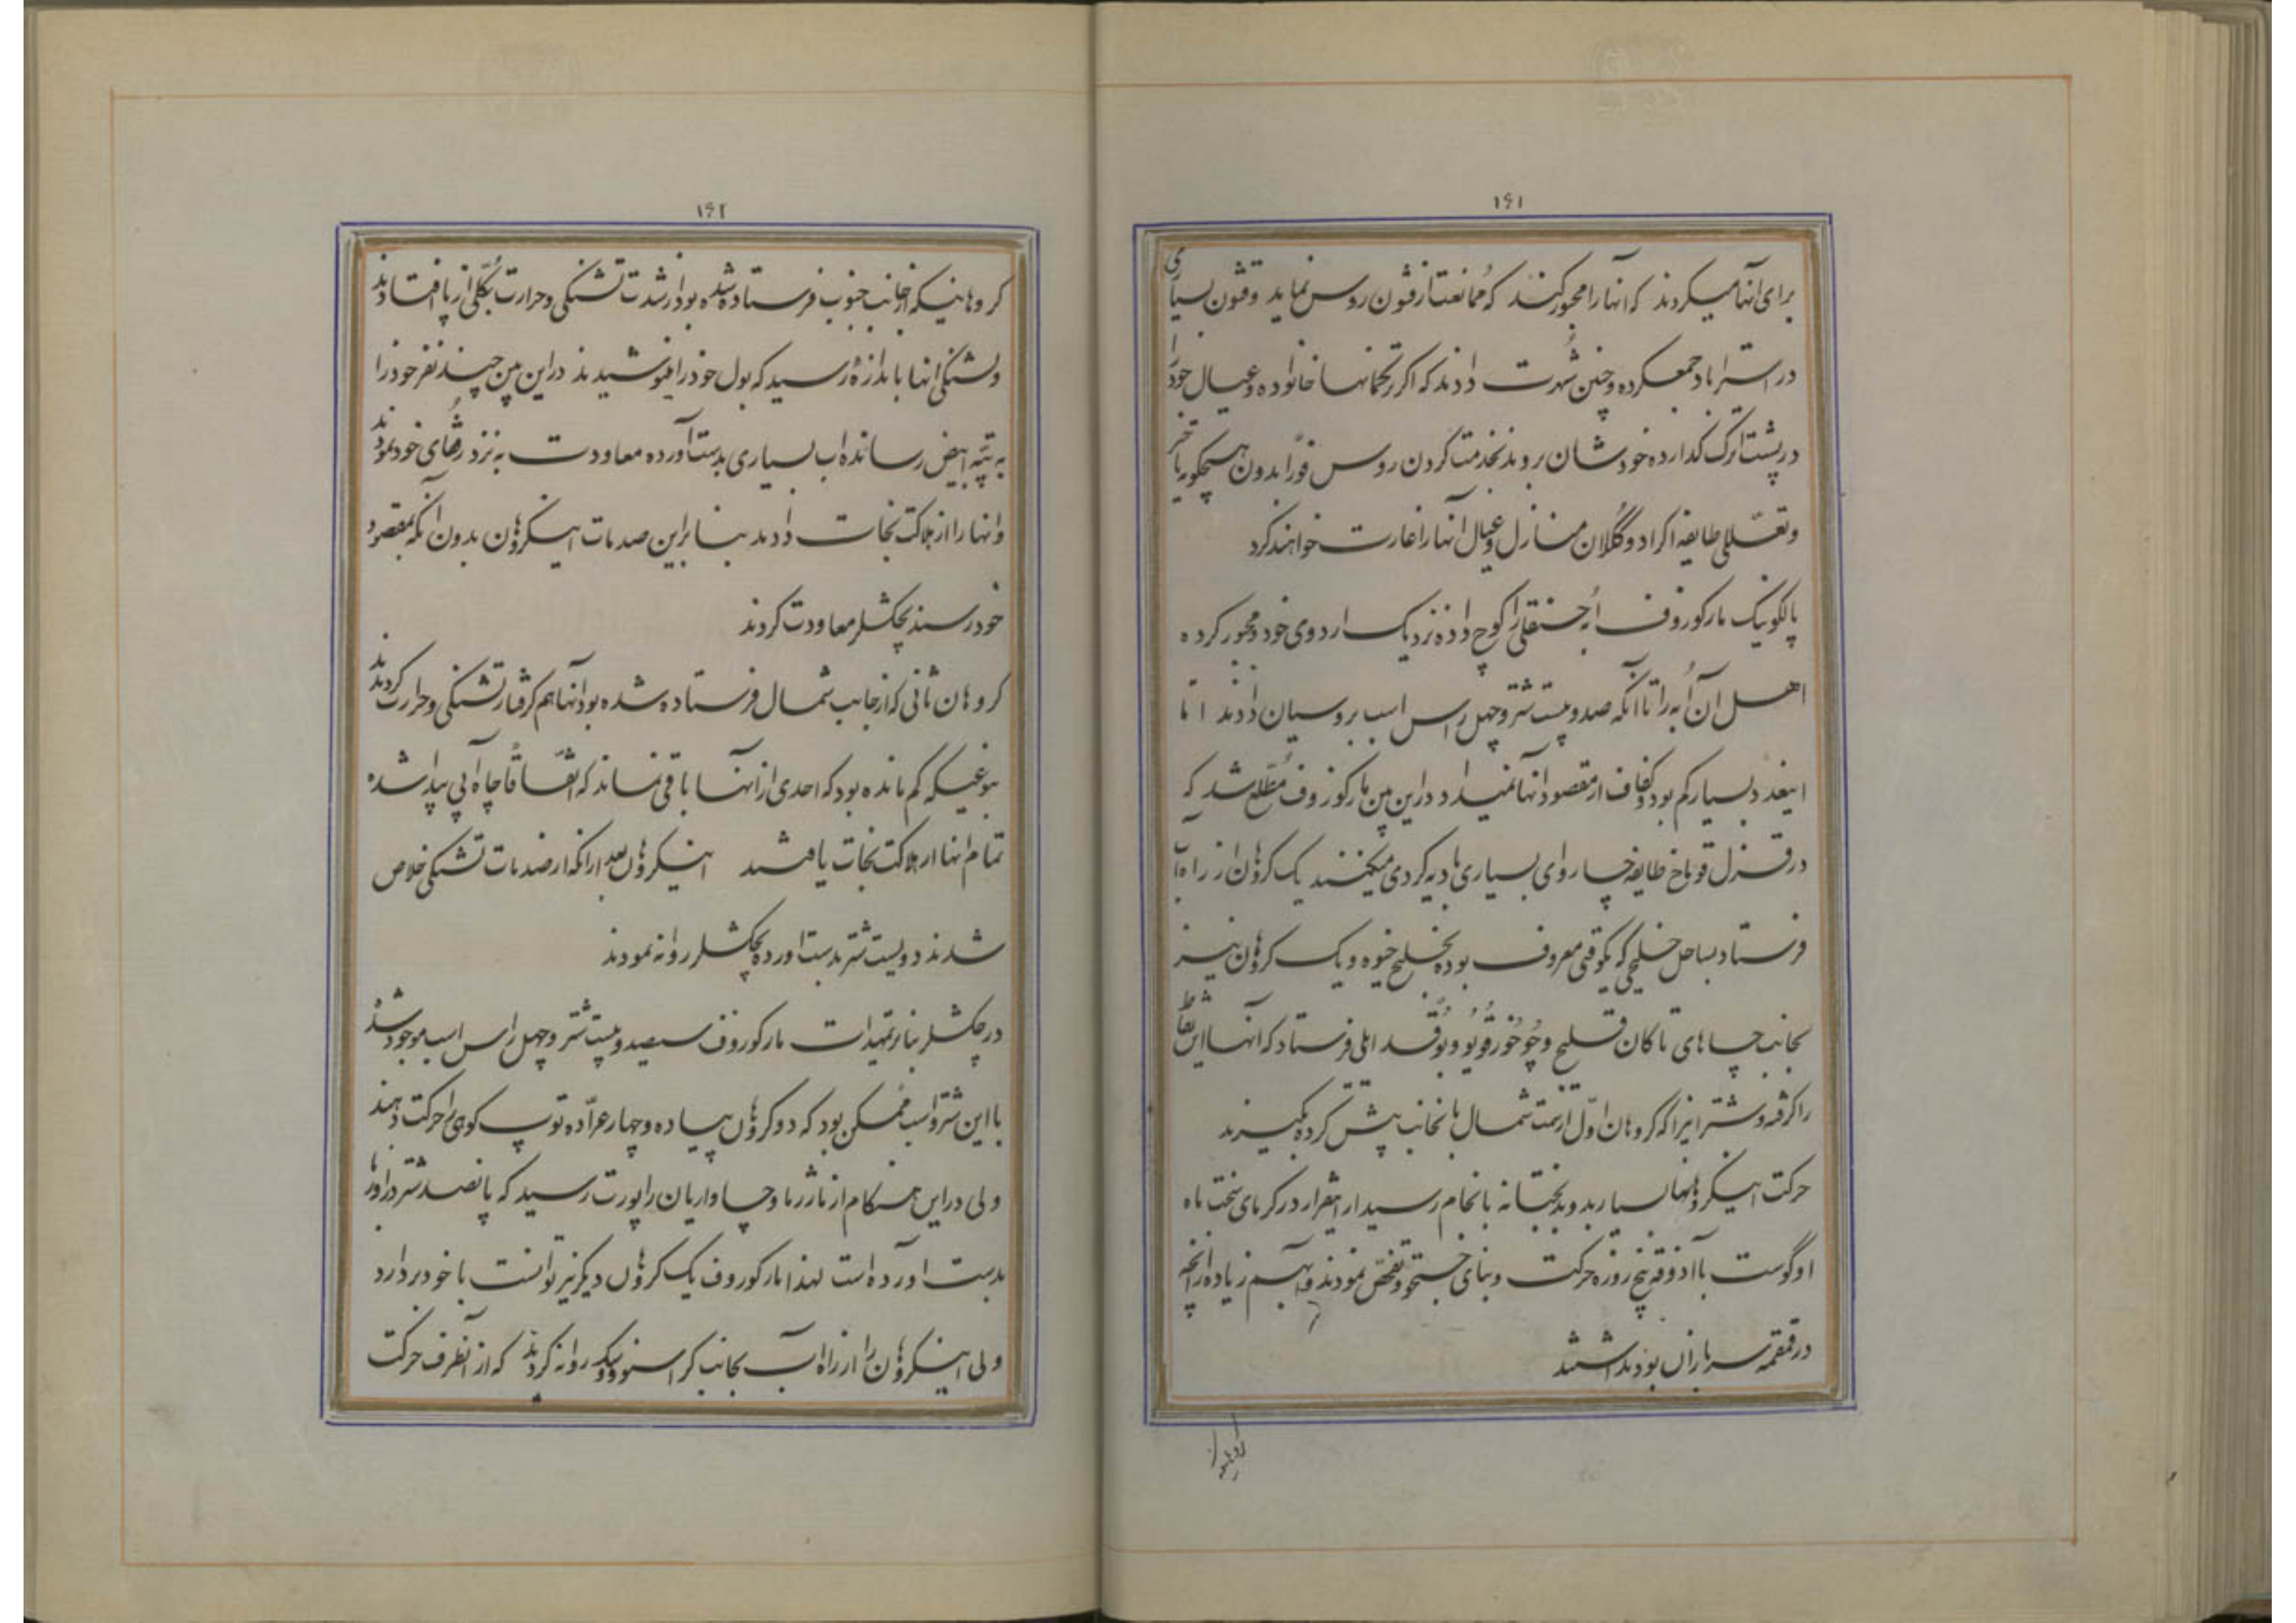 ۱۶۱
برای آنها میکردند که انها را مجبور کنند که ممانعت از قشون روس نماید و قشون بسیاری
در استراباد جمع کرده و چنین شهرت دادند که اکر ترکمانها خانواده و عیال خود را
در پشت اترک کذارده خودشان بروند بخدمت کردن روس فوراً بدون هیچکونه تاخیر
و تعللی طایفه اکراد و کلان منازل و عیال انها را غارت خواهند کرد
پالکونیک مارکوزوف ابه حسنقلی را کوچ داده نزدیک اردوی خود و مجبور کرده
اهل آن اُبه را تا آنکه صد و بیست شتر و چهل راس اسب بروسیان دادند اما
اینعدد بسیار کم بود و کفاف از مقصود آنها نمیداد در این بین مارکوزوف مطلع شد که
در قزل قوباخ طایفه چاروای بسیاری بادیه کردی میکنند یک کروهان از راه آب
فرستاد بساحل خلیجی که یکوقتی معروف بوده بخلیج خیوه و یک کروهان نیز
بجانب چاهای تاکان قلیح و چوخورقویو و بوقدایلی فرستاد که آنها این نقاط
را کرفته و شتر انیرا که کروهان اول از سمت شمال بانجانب پیش کرده بکیرند
حرکت اینکروهانها بسیار بد و بدبختانه بانجام رسید از اینقرار در کرمای سخت ماه
اوگوست با آذوقه پنج روزه حرکت و بنای جستجو و تفحص نمودند و آب هم زیاده از آنچه
در قمقمه سربازان بود نداشتند
۱۶۲
کروهانیکه از جانب جنوب فرستاده شده بود از شدت تشنکی و حرارت بکلی از پا افتادند
و تشنکی انها باندازه رسید که بول خود را مینوشیدند در این بین چند نفر خود را
به تپه ابیض رسانده اب بسیاری بدست آورده معاودت به نزد رفقای خود نمودند
و انها را از هلاکت نجات دادند بنا براین صدمات اینکروهان بدون آنکه بمقصود
خود رسند بچکشلر معاودت کردند
کروهان ثانی که از جانب شمال فرستاده شده بود آنها هم کرفتار تشنکی و حرارت کردیدند
بنوعیکه کم مانده بود که احدی از آنها باقی نماند که اتفاقاً چاه آبی پیدا شده
تمام انها از هلاکت نجات یافتند اینکروهان بعد از انکه از صدمات تشنکی خلاص
شدند دویست شتر بدست اورده بچکشلر روانه نمودند
در چکشلر بنا بر تمهیدات مارکوزوف سیصد و بیست شتر و چهل راس اسب موجود شد
با این شتر و اسب ممکن بود که دو کروهان پیاده و چهار عراده توپ کوهی را حرکت دهند
ولی در این هنکام از ناژرما و چاواریان راپورت رسید که پانصد شتر در اورتا
بدست اورده است لهذا مارکوزوف یک کروهان دیکر نیز توانست با خود بردارد
ولی اینکروهان را از راه آب بجانب کراسنوودسک روانه کردند که از آنطرف حرکت